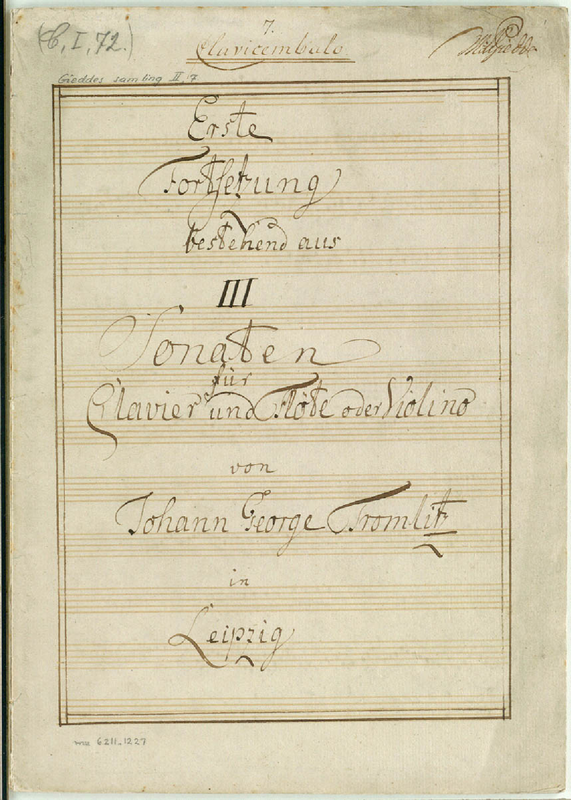 7.
(C, I, 72.)
Clavicembalo
Gieddes samling II, 7
Erste
Fortsetzung
bestehend aus
III
Sonaten
für
Clavier und Flöte oder Violino
von
Johann George Tromlitz
in
Leipzig
mu 6211.1227